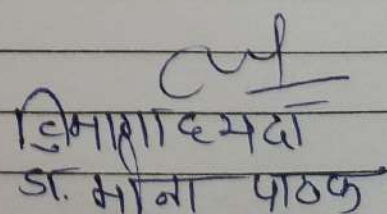 विभागाध्यक्षा
डा. मीना पाठक